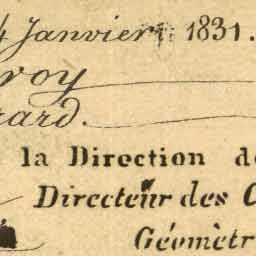 4 Janvier 1831.
roy
rard.
la Direction d
Directeur des C
Géomètr